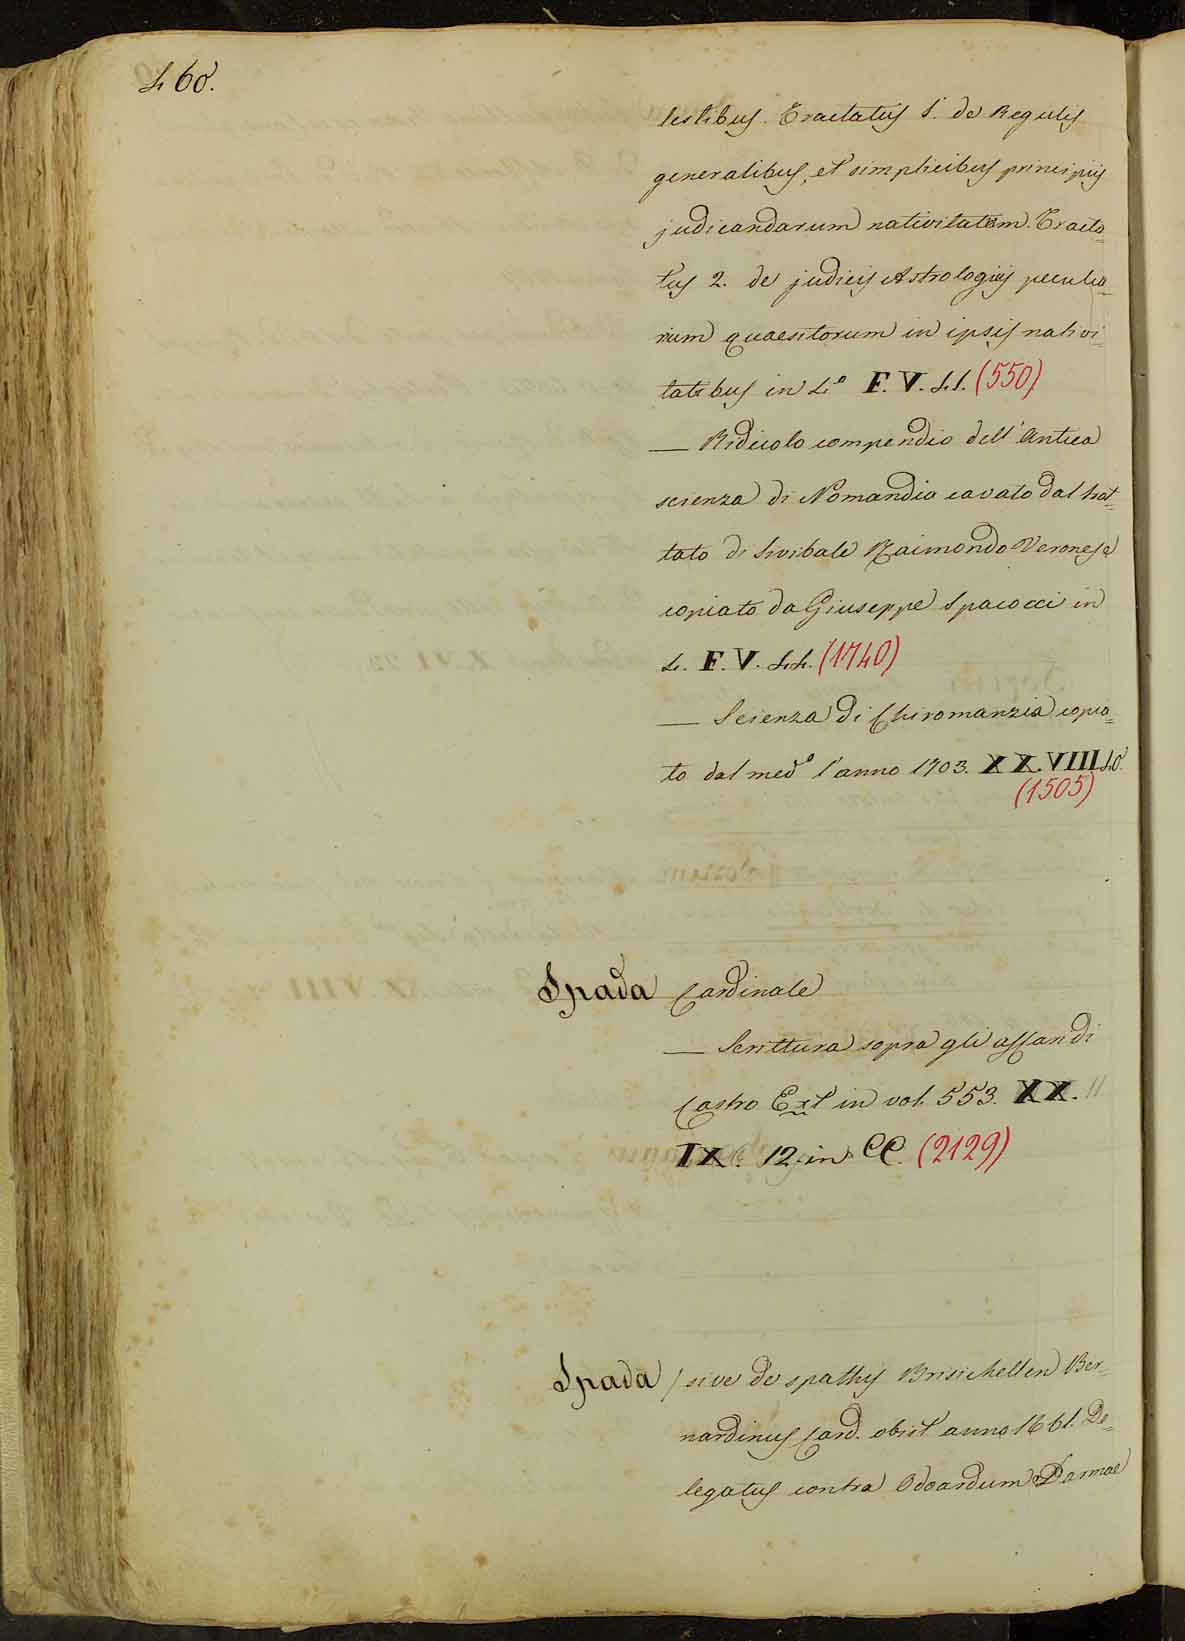 460.
lestibus. Tractatus 1. de Regulis
generalibus, et simplicibus principiis
judicandarum nativitatem. Tracta-
tus 2. de judiciis Astrologiis peculia-
rium quaesitorum in ipsis nativi-
tatibus in 4.° F. V. 41. (550)
— Ridicolo compendio dell' Antica
scienza di Nomandia cavato dal trat-
tato di Sinibale Raimondo Veronese
copiato da Giuseppe Spacocci in
4. F. V. 44. (1740)
— Scienza di Chiromanzia copia-
to dal med.° l'anno 1703. XX. VIII 40.
(1505)
Spada Cardinale
— Scrittura sopra gli affari di
Castro Ext in vol. 553. XX.
IX. 12 in CC. (2129)
Spada / sive de spathis Brisichellen Ber-
nardinus Card. obiit anno 1661. De-
legatus contra Odoardum Parmae